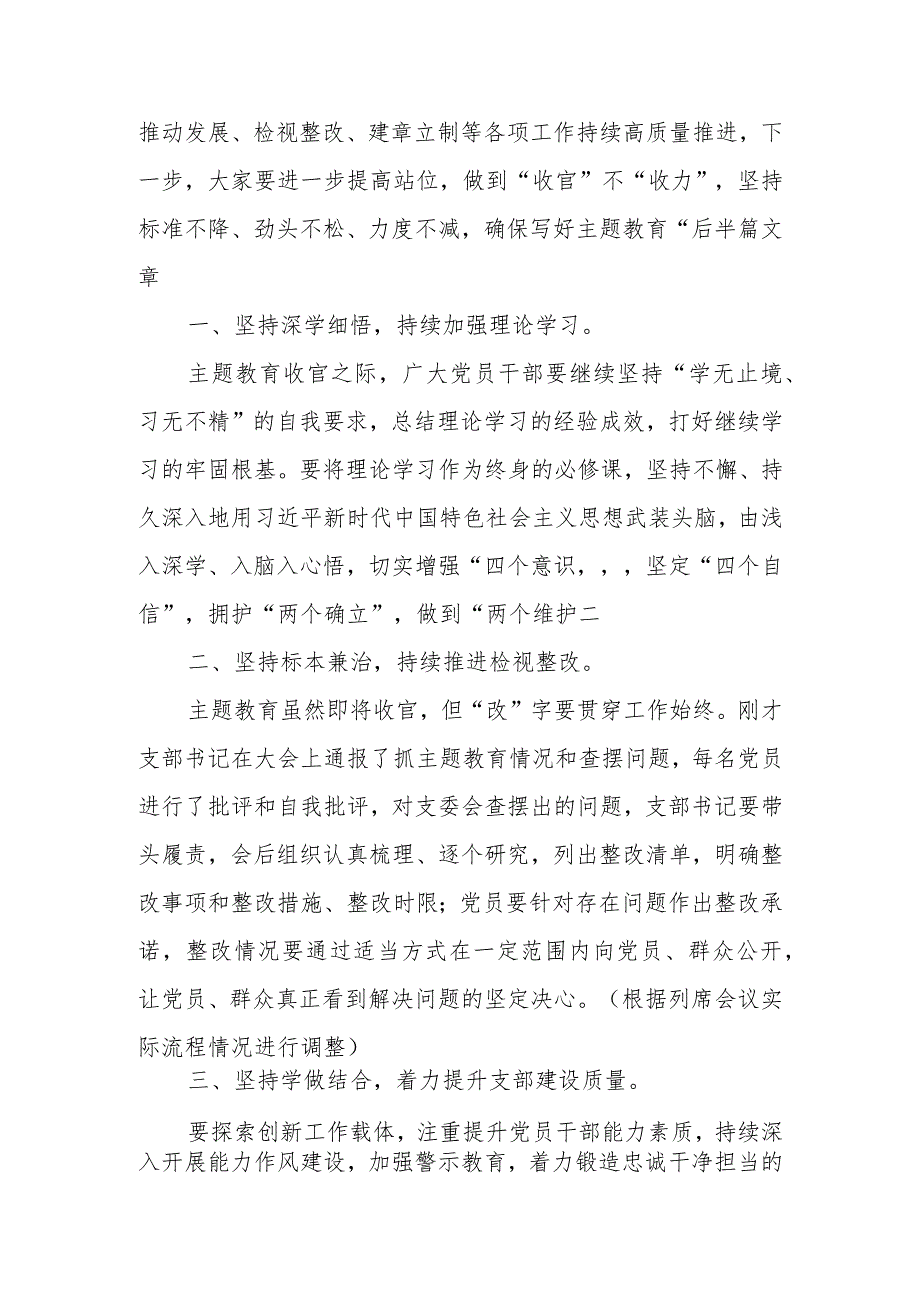 推动发展、检视整改、建章立制等各项工作持续高质量推进，下
一步，大家要进一步提高站位，做到“收官”不“收力”，坚持
标准不降、劲头不松、力度不减，确保写好主题教育“后半篇文
章
一、坚持深学细悟，持续加强理论学习。
主题教育收官之际，广大党员干部要继续坚持“学无止境、
习无不精”的自我要求，总结理论学习的经验成效，打好继续学
习的牢固根基。要将理论学习作为终身的必修课，坚持不懈、持
久深入地用习近平新时代中国特色社会主义思想武装头脑，由浅
入深学、入脑入心悟，切实增强“四个意识，，，坚定“四个自
信”，拥护“两个确立”，做到“两个维护二
二、坚持标本兼治，持续推进检视整改。
主题教育虽然即将收官，但“改”字要贯穿工作始终。刚才
支部书记在大会上通报了抓主题教育情况和查摆问题，每名党员
进行了批评和自我批评，对支委会查摆出的问题，支部书记要带
头履责，会后组织认真梳理、逐个研究，列出整改清单，明确整
改事项和整改措施、整改时限；党员要针对存在问题作出整改承
诺，整改情况要通过适当方式在一定范围内向党员、群众公开，
让党员、群众真正看到解决问题的坚定决心。（根据列席会议实
际流程情况进行调整）
三、坚持学做结合，着力提升支部建设质量。
要探索创新工作载体，注重提升党员干部能力素质，持续深
入开展能力作风建设，加强警示教育，着力锻造忠诚干净担当的